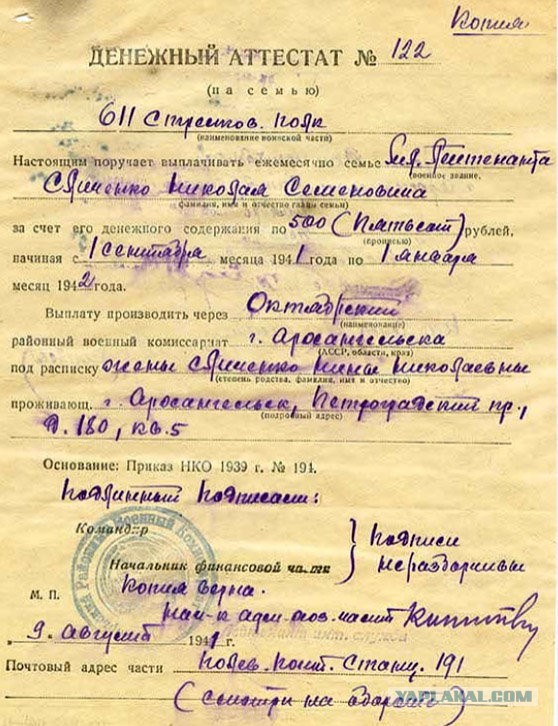 Копия
ДЕНЕЖНЫЙ АТТЕСТАТ № 122
(на семью)
611 Стрелков. полк
(наименование воинской части)
Настоящим поручает выплачивать ежемесячно семье Мл. Лейтенанта
(военное звание,
Сяченко Николая Семеновича
фамилия, имя и отчество главы семьи)
за счет его денежного содержания по 500 (Пятьсот) рублей,
(прописью)
начиная с 1 сентября месяца 1941 года по 1 января
месяц 1942 года.
Выплату производить через Октябрский
(наименование)
районный военный комиссариат г. Архангельска
(АССР, области, края)
под расписку жены Сяченко Нины Николаевны
(степень родства, фамилия, имя и отчество)
проживающ. г. Архангельск, Петроградский пр.,
(подробный адрес)
д. 180, кв. 5
Основание: Приказ НКО 1939 г. № 194.
Подлинный подписали:
Командир
Начальник финансовой части
подписи
неразборчивы
М. П.
Копия верна.
Нач-к адм. хоз.
9. август 1941 г.
инт. служба
Почтовый адрес части Полев. почт. станц. 191
(смотри на обороте)
YAPLAKAL.COM